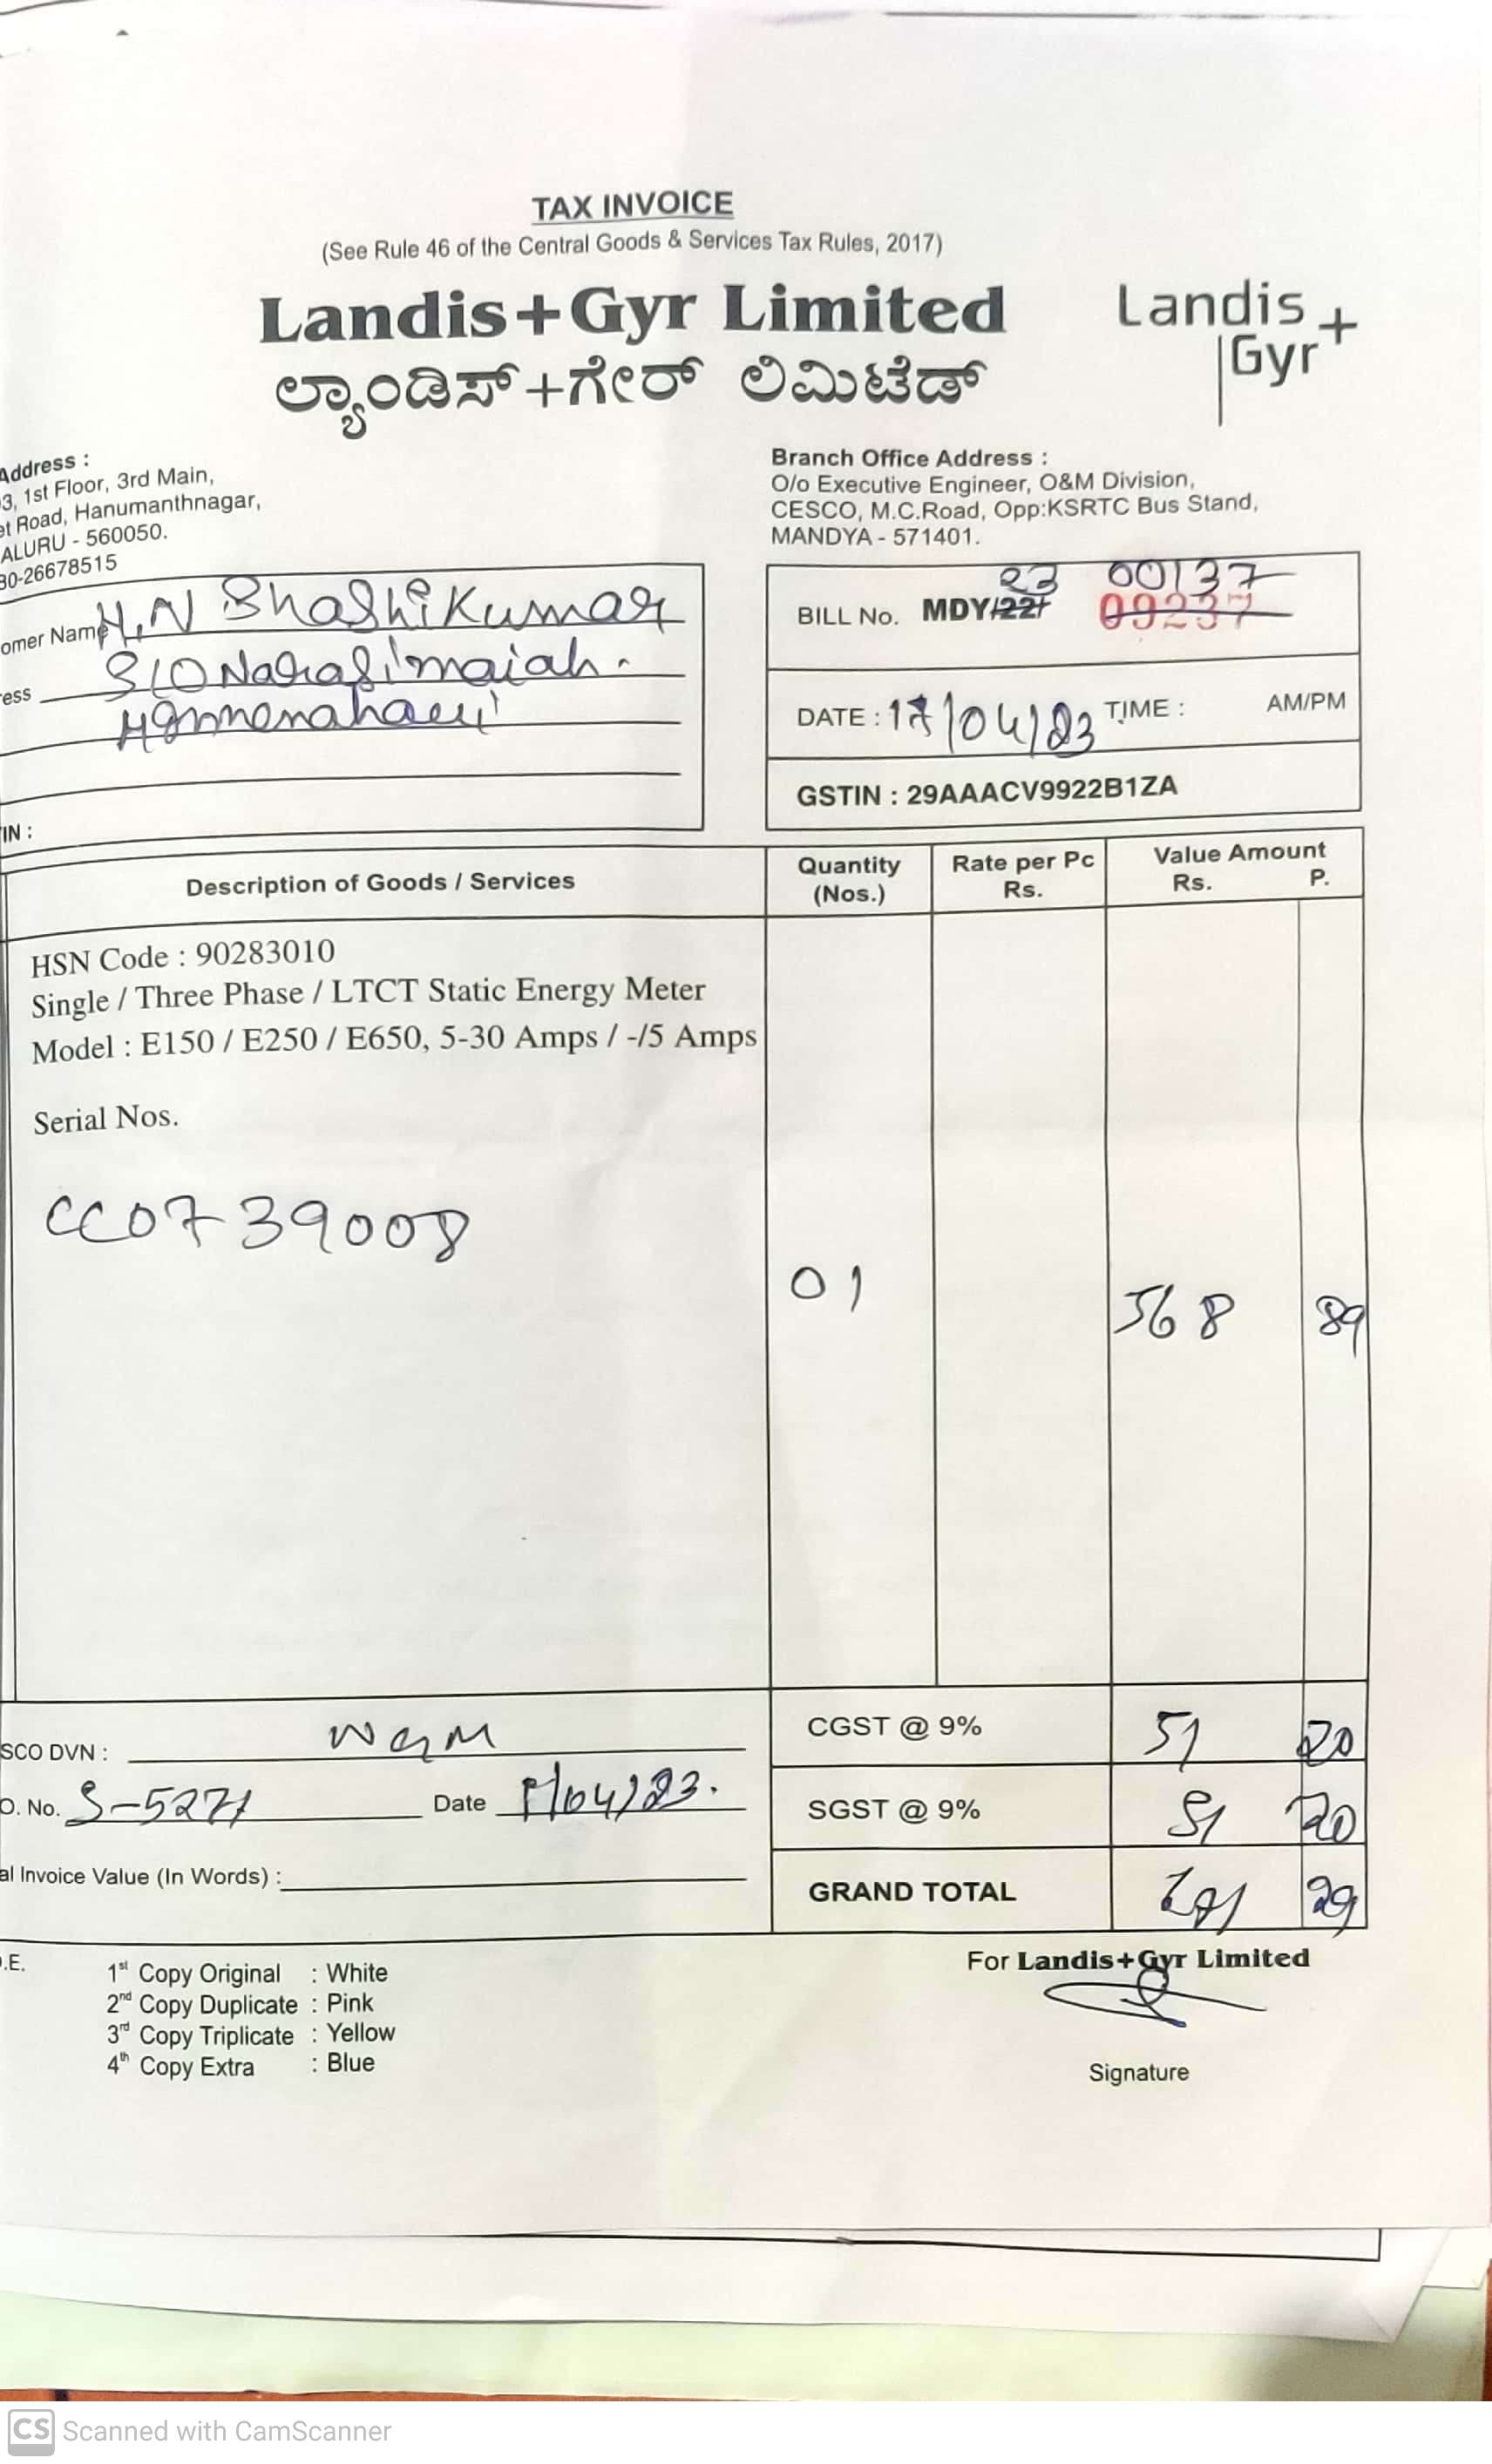 TAX INVOICE
(See Rule 46 of the Central Goods & Services Tax Rules, 2017)
Landis+Gyr Limited
ಲ್ಯಾಂಡಿಸ್+ಗೇರ್ ಲಿಮಿಟೆಡ್
Landis
Gyr+
Address :
3, 1st Floor, 3rd Main,
et Road, Hanumanthnagar,
ALURU - 560050.
80-26678515
Branch Office Address :
O/o Executive Engineer, O&M Division,
CESCO, M.C.Road, Opp:KSRTC Bus Stand,
MANDYA - 571401.
omer Name H.N Shashikumar
ress S/O Narasimaiah.
BILL No. MDY/22/ 23 00137
09237
DATE : 17/04/23 TIME : AM/PM
GSTIN : 29AAACV9922B1ZA
IN :
Description of Goods / Services Quantity (Nos.) Rate per Pc Rs. Value Amount Rs. P.
HSN Code : 90283010
Single / Three Phase / LTCT Static Energy Meter
Model : E150 / E250 / E650, 5-30 Amps / -/5 Amps
Serial Nos.
CC0739008
01 568 89
SCO DVN : CGST @ 9% 51 20
O. No. S-5271 Date /04/23. SGST @ 9% 51 20
al Invoice Value (In Words) : GRAND TOTAL 671 29
O.E.
1st Copy Original : White
2nd Copy Duplicate : Pink
3rd Copy Triplicate : Yellow
4th Copy Extra : Blue
For Landis+Gyr Limited
Signature
CS Scanned with CamScanner